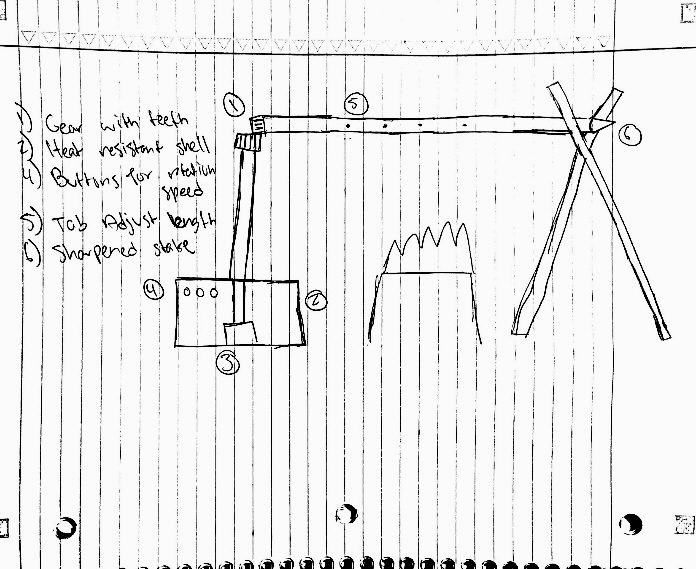 1) Gear with teeth
2) Heat resistant shell
4) Buttons for rotation
speed
5) Tab Adjust length
6) Sharpened stake
1
5
6
4
2
3